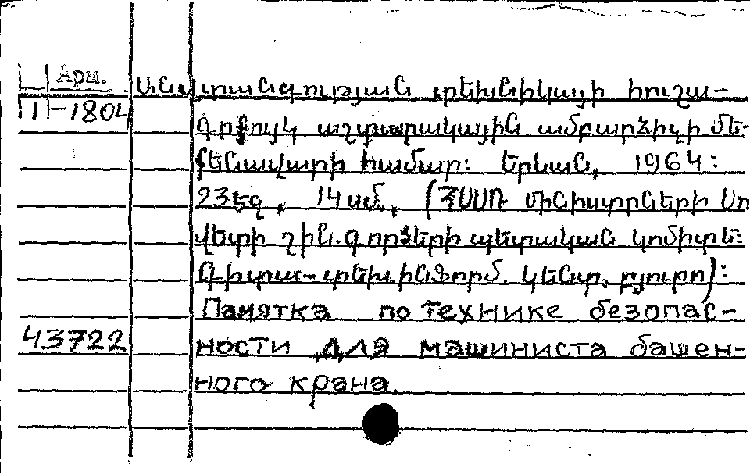 Арм.
II-1804
Անվտանգության տեխնիկայի հուշա-
գրքույկ աշտարակային ամբարձիչի մե-
քենավարի համար: Երևան, 1964:
23 էջ, 14 սմ, (ՀՍՍՌ Մինիստրների Սո
վետի շին. գործերի պետական կոմիտե:
Գիտա-տեխ. ինֆորմ. կենտր. բյուրո):
Памятка по технике безопас-
43722 ности для машиниста башен-
ного крана.